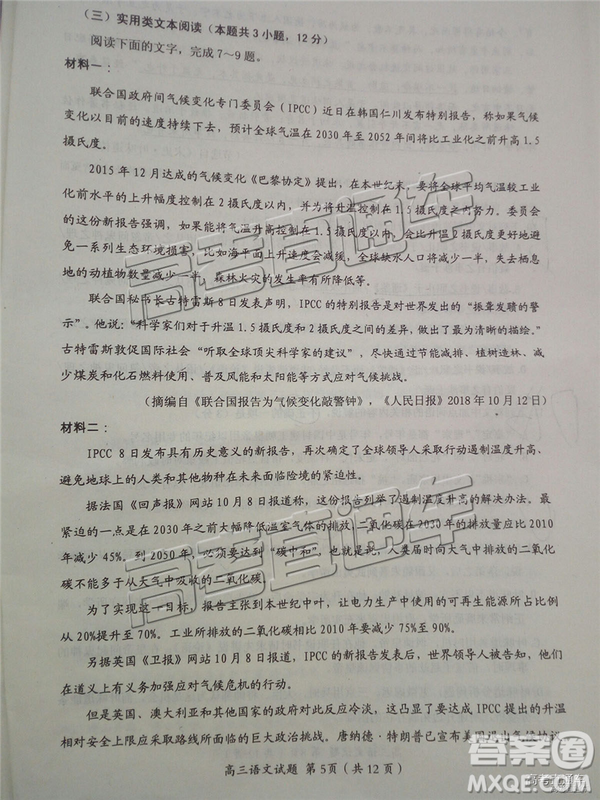 （三）实用类文本阅读（本题共3小题，12分）
阅读下面的文字，完成7～9题。
材料一：
联合国政府间气候变化专门委员会（IPCC）近日在韩国仁川发布特别报告，称如果气候
变化以目前的速度持续下去，预计全球气温在2030年至2052年间将比工业化之前升高1.5
摄氏度。
2015年12月达成的气候变化《巴黎协定》提出，在本世纪末，要将全球平均气温较工业
化前水平的上升幅度控制在2摄氏度以内，并为将升温控制在1.5摄氏度之内努力。委员会
的这份新报告强调，如果能将气温升高控制在1.5摄氏度以内，会比升高2摄氏度更好地避
免一系列生态环境损害，比如海平面上升速度会减缓，全球缺水人口将减少一半，失去栖息
地的动植物数量减少一半，森林火灾的发生率有所降低等。
联合国秘书长古特雷斯8日发表声明，IPCC的特别报告是对世界发出的“振聋发聩的警
示”。他说：“科学家们对于升温1.5摄氏度和2摄氏度之间的差异，做出了最为清晰的描绘。”
古特雷斯敦促国际社会“听取全球顶尖科学家的建议”，尽快通过节能减排、植树造林、减
少煤炭和化石燃料使用、普及风能和太阳能等方式应对气候挑战。
（摘编自《联合国报告为气候变化敲警钟》，《人民日报》2018年10月12日）
材料二：
IPCC 8日发布具有历史意义的新报告，再次确定了全球领导人采取行动遏制温度升高、
避免地球上的人类和其他物种在未来面临险境的紧迫性。
据法国《回声报》网站10月8日报道称，这份报告列举了遏制温度升高的解决办法。最
紧迫的一点是在2030年之前大幅降低温室气体的排放，二氧化碳在2030年的排放量应比2010
年减少45%。到2050年，必须要达到“碳中和”，也就是说，人类届时向大气中排放的二氧化
碳不能多于从大气中吸收的二氧化碳。
为了实现这一目标，报告计划到本世纪中叶，让电力生产中使用的可再生能源所占比例
从20%提升至70%。工业所排放的二氧化碳相比2010年要减少75%至90%。
另据英国《卫报》网站10月8日报道，IPCC的新报告发表后，世界领导人被告知，他们
在道义上有义务加强应对气候危机的行动。
但是英国、澳大利亚和其他国家的政府对此反应冷淡，这凸显了要达成IPCC提出的升温
相对安全上限应采取路线所面临的巨大政治挑战。唐纳德·特朗普已宣布美国退出气候协议
高三语文试题 第5页（共12页）
高考直通车
高考直通车
答案圈